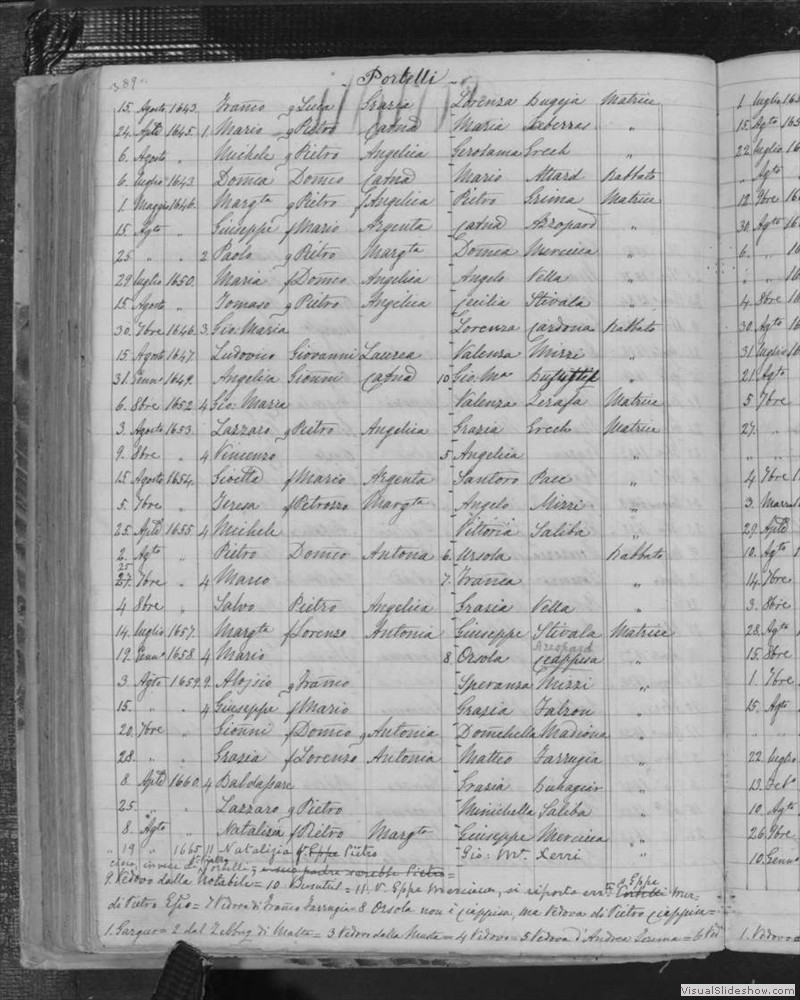 389
Portelli
15. Agosto 1643. Franco g Luca Grazia Lorenza Bugeja Matrice
24. Aple 1645. 1. Mario g Pietro Catna Maria Xeberras "
6. Agosto " Michele g Pietro Angelica Gerolama Grech "
6. luglio 1643. Domca Domco Catna Mario Attard Rabbato
1. Maggio 1646. Margta g Pietro f Angelica Pietro Grima Matrice
15. Agto " Giuseppe f Mario Argenta Catna Azzopard "
25 " " 2 Paolo g Pietro Margta Domca Mercieca "
29 luglio 1650. Maria f Domco Angelica Angelo Vella "
15. Agosto " Tomaso g Pietro Angelica Cecilia Stivala "
30. 7bre 1646. 3. Gio: Maria Lorenza Cardona Rabbato
15 Agosto 1647. Ludovico Giovanni Laurea Valenza Mizzi "
31. Genn: 1649. Angelica Gionni Catna 10 Gio: Ma "
6. 8bre 1652 4 Gio: Maria Valenza Zerafa Matrice
3. Agosto 1653. Lazzaro g Pietro Angelica Grazia Grech Matrice
9. 8bre " 4 Vincenzo 5 Angelica "
15. Agosto 1654. Gioetta f Mario Argenta Santoro Pace "
5. 7bre " Teresa f Petrozzo Margta Angelo Mizzi "
25. Aple 1655. 4 Michele Vittoria Saliba "
2. Agto " Pietro Domco Antona 6. Ursola Rabbato
25
27. 7bre " 4 Marco 7. Franca "
4 8bre " Salvo Pietro Angelica Grazia Vella "
14. luglio 1657. Margta f Lorenzo Antonia Giuseppe Stivala Matrice
Azzopard
19. Genn: 1658. 4 Mario 8. Orsola Ciappisa "
3. Agto 1659. 9. Alojsio g Franco Speranza Mizzi "
15. " " 4 Giuseppe f Mario Grazia Falzon "
20. 7bre " Gionni f Domco g Antonia Domichella Madiona "
28. " " Grazia f Lorenzo Antonia Matteo Farrugia "
8. Aple 1660. 4 Baldassare Grazia Buhagiar "
25. " " Lazzaro g Pietro Minichella Saliba "
8. Agto " Natalizia f Pietro Margta Giuseppe Mercieca "
" 19 " 1665. 11 Natalizia f. Eppe Pietro Gio: Ma. Xerri "
9. Vedovo dalla Notabile = 10. = 11. V. Eppe Mercieca, si riporta Portelli
di Pietro = 7 Vedova di Franco Farrugia = 8 Orsola non è Ciappisa, ma Vedova di Pietro Ciappisa =
1. Gargur = 2 dal Zebbug di Malta = 3 Vedovo dalla Musta = 4 Vedovo = 5 Vedova d'Andrea = 6 Ved
1 luglio
15. Agto
22 luglio
" Agto
12. 9bre
30. Agto
6. "
4 8bre
30 Agto
31 luglio
21. Agto
5 7bre
27. "
4 7bre
3. Marzo
29. Aple
10. Agto
14. 7bre
3. 8bre
28. Agto
15. 8bre
1. 7bre
15. Agto
22 luglio
13.
10. Agto
26. 9bre
10. Genn
1. Vedova
VisualSlideshow.com